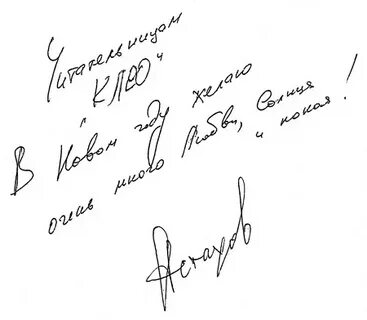 Читательницам
"КЛЕО"
В Новом году желаю
очень много Любви, Солнца
и покоя!
Астахов